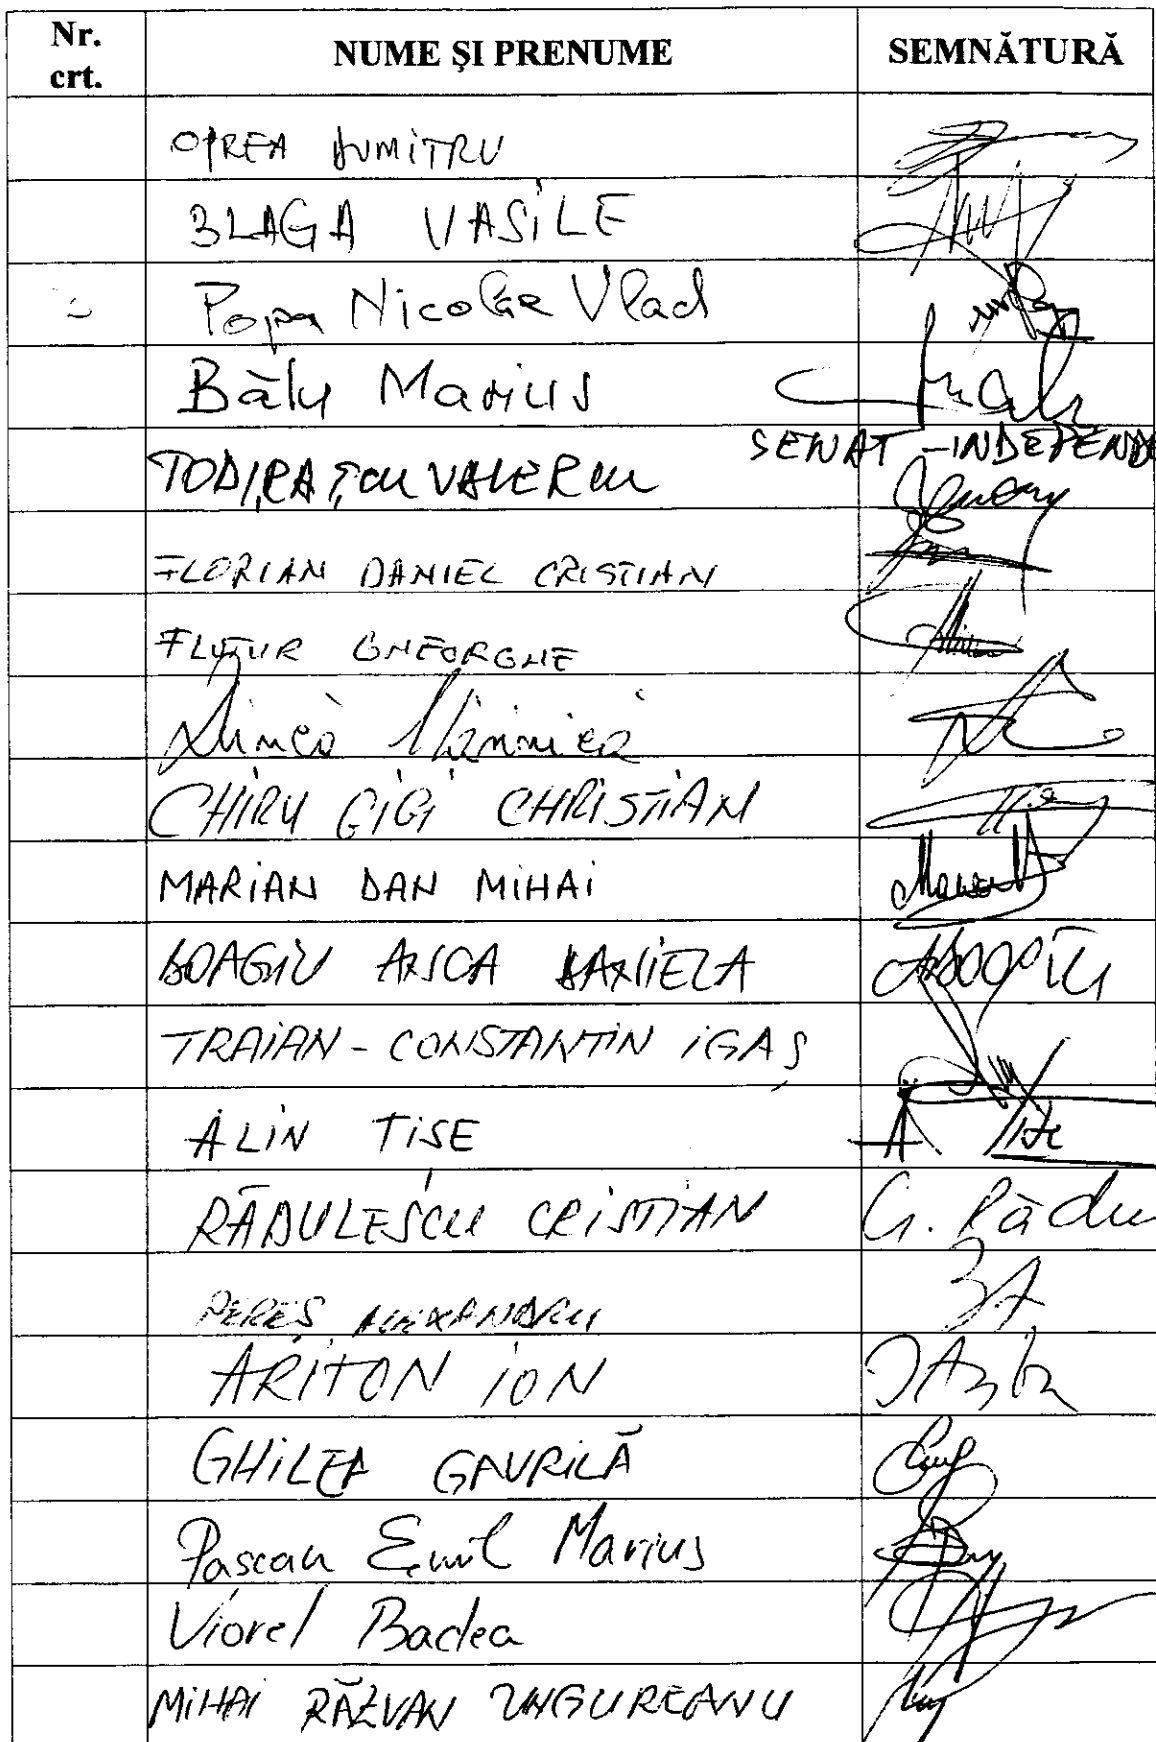 Nr. crt. NUME ŞI PRENUME SEMNĂTURĂ
OPREA DUMITRU
BLAGA VASILE
Popa Nicolae Vlad
Bâlu Marius
SENAT - INDEPEND
TODIRAŞCU VALERIU
FLORIAN DANIEL CRISTIAN
FLUTUR GHEORGHE
Mînnică
CHIRU GIGI CHRISTIAN
MARIAN DAN MIHAI
BOAGIU ANCA DANIELA
TRAIAN - CONSTANTIN IGAŞ
ALIN TISE A Tise
RĂDULESCU CRISTIAN C. Rădu
PEREŞ ALEXANDRU
ARITON ION
GHILEA GAVRILĂ
Pascan Emil Marius
Viorel Badea
MIHAI RĂZVAN UNGUREANU